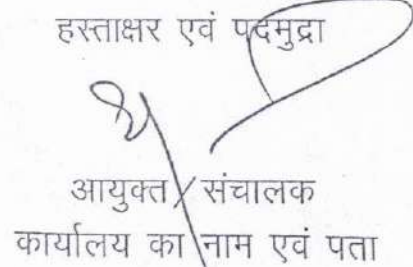 हस्ताक्षर एवं पदमुद्रा
आयुक्त / संचालक
कार्यालय का नाम एवं पता